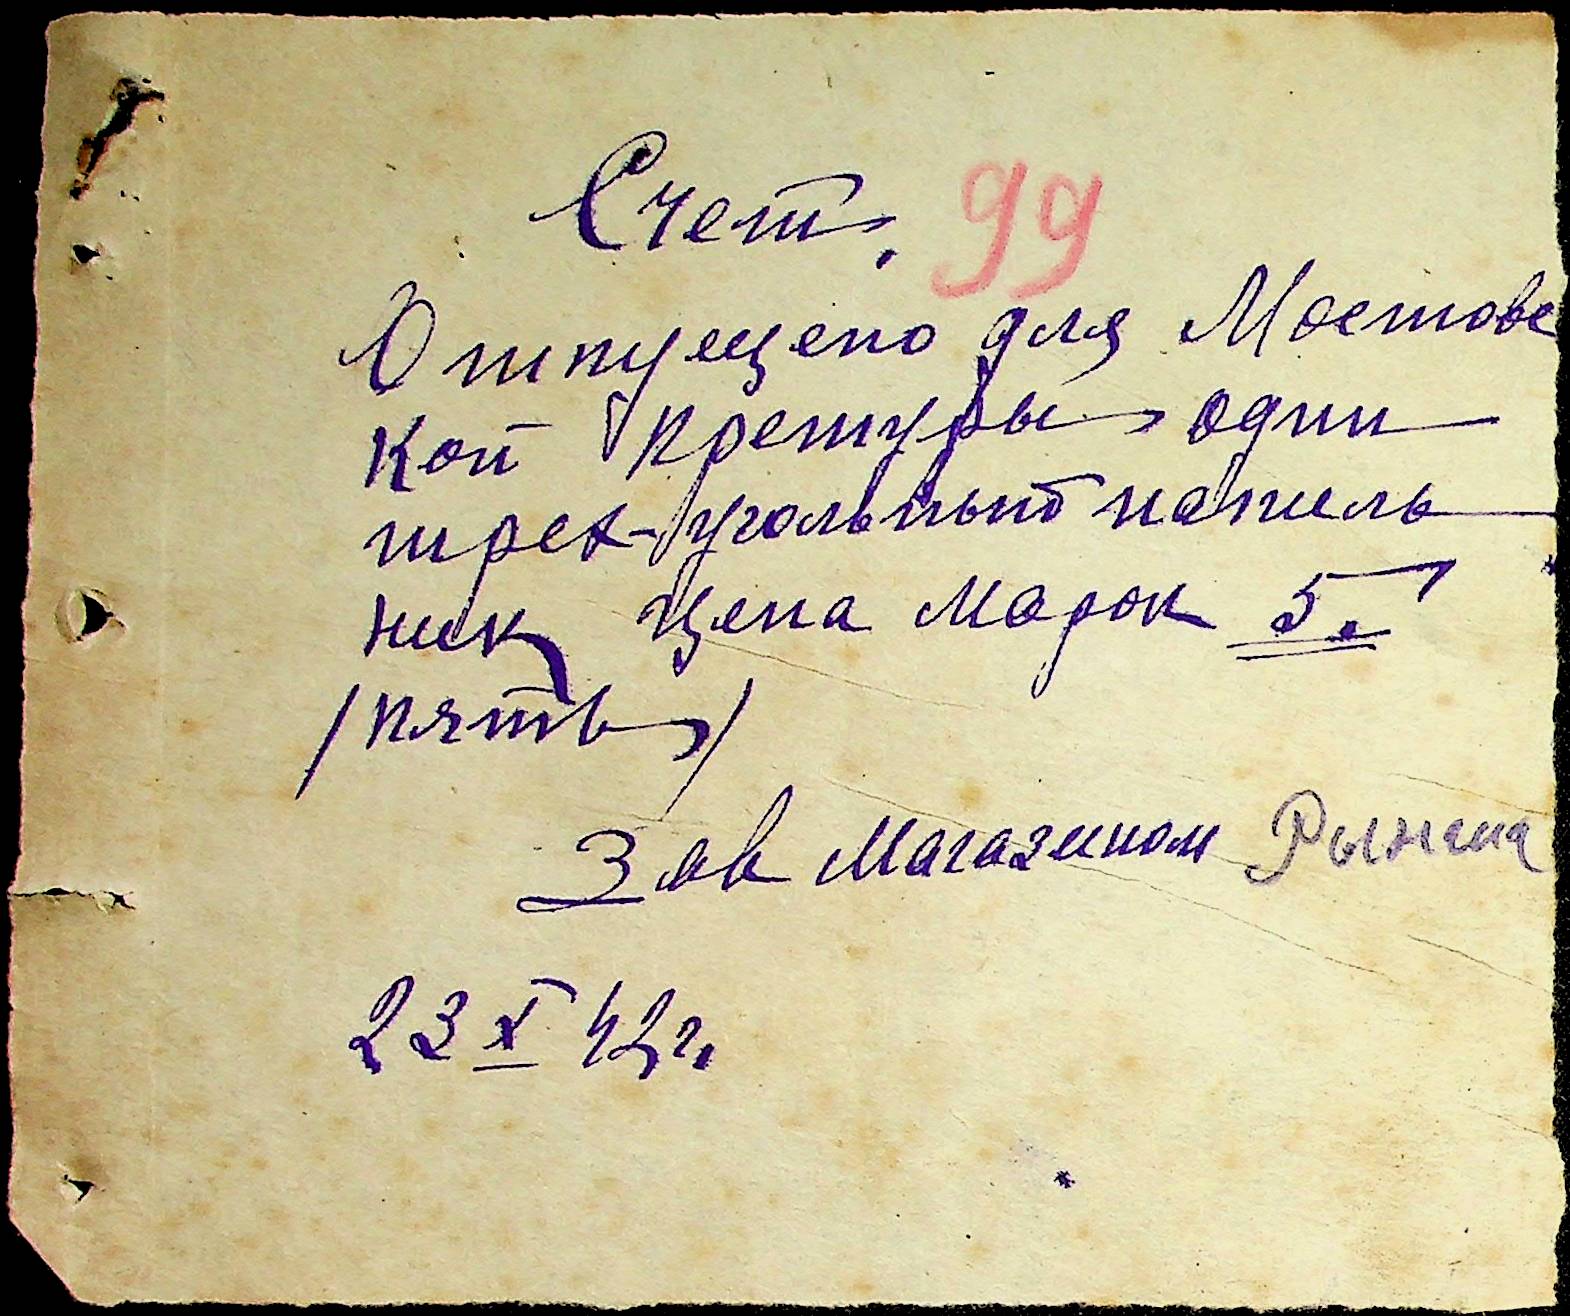 Счет. 99
Отпущено для Мостовс
кой Претуры один
трех-угольный напиль
ник Цена Марок 5.
/пять/
Зав Магазином
23 X 42 г.